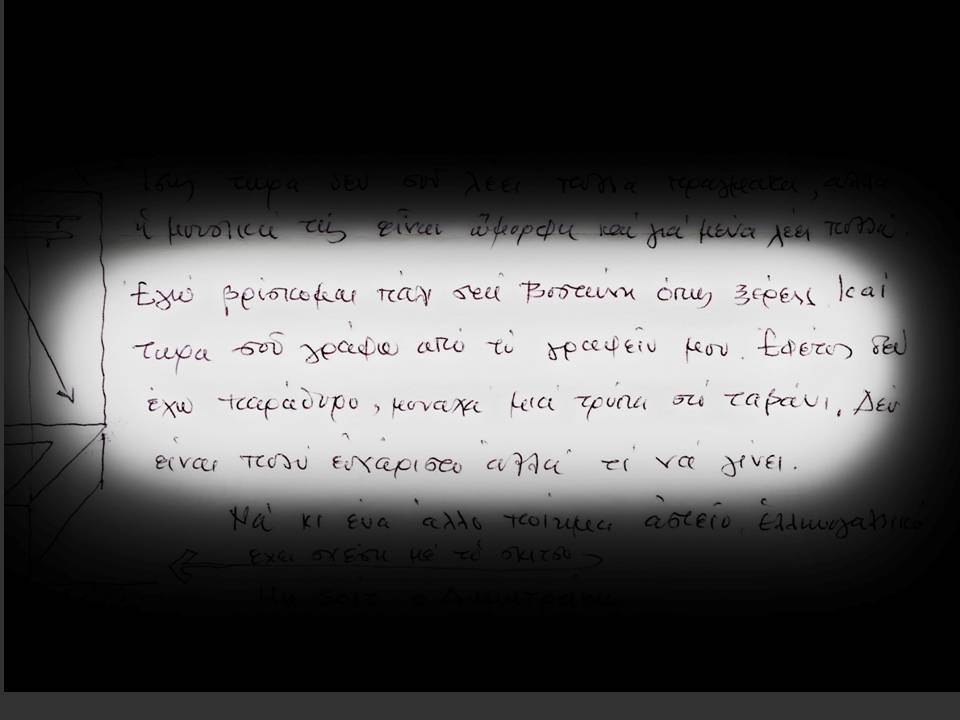 Ίσως τώρα δεν σου λέει πολλά πράγματα, αλλά
ἡ μουσική τῆς εἶναι ὤμορφη καί γιά μένα λέει πολλά.
Εγώ βρίσκομαι πάλι στή Βοστώνη όπως ξέρεις καί
τώρα σοῦ γράφω από τό γραφεῖο μου. Εφέτος δέν
έχω παράθυρο, μοναχά μιά τρύπα στό ταβάνι. Δέν
είναι πολύ εὐχάριστο ἀλλά τί νά γίνει.
Νά κι ένα άλλο ποίημα ἀστείο, ἑλληνογαλλικό
έχει σχέση μέ τό σκίτσο